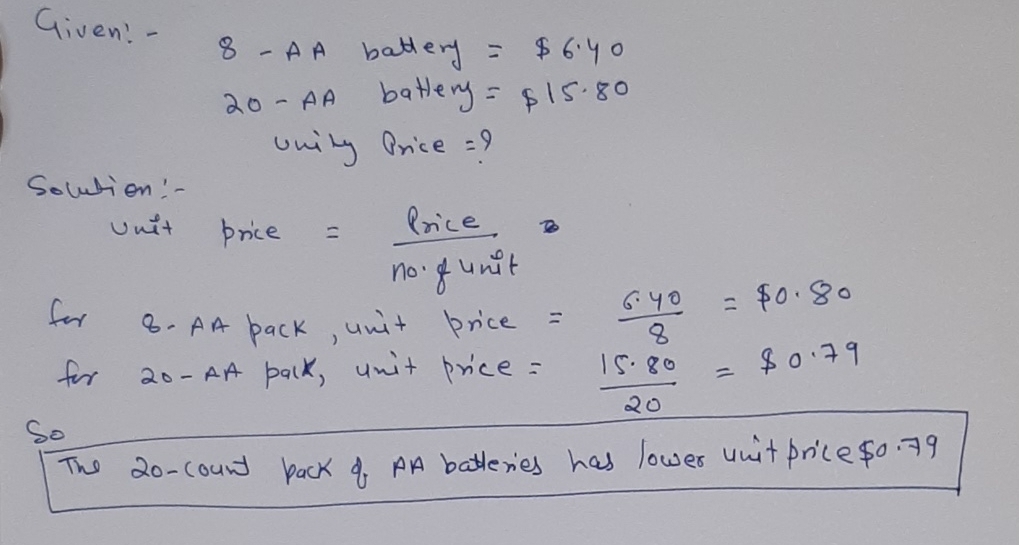 Given:-
8 - AA battery = $6.40
20 - AA battery = $15.80
unity Price = ?
Solution:-
unit price = Price / no. of unit
for 8 - AA pack, unit price = 6.40 / 8 = $0.80
for 20 - AA pack, unit price = 15.80 / 20 = $0.79
So
The 20-count pack of AA batteries has lower unit price $0.79